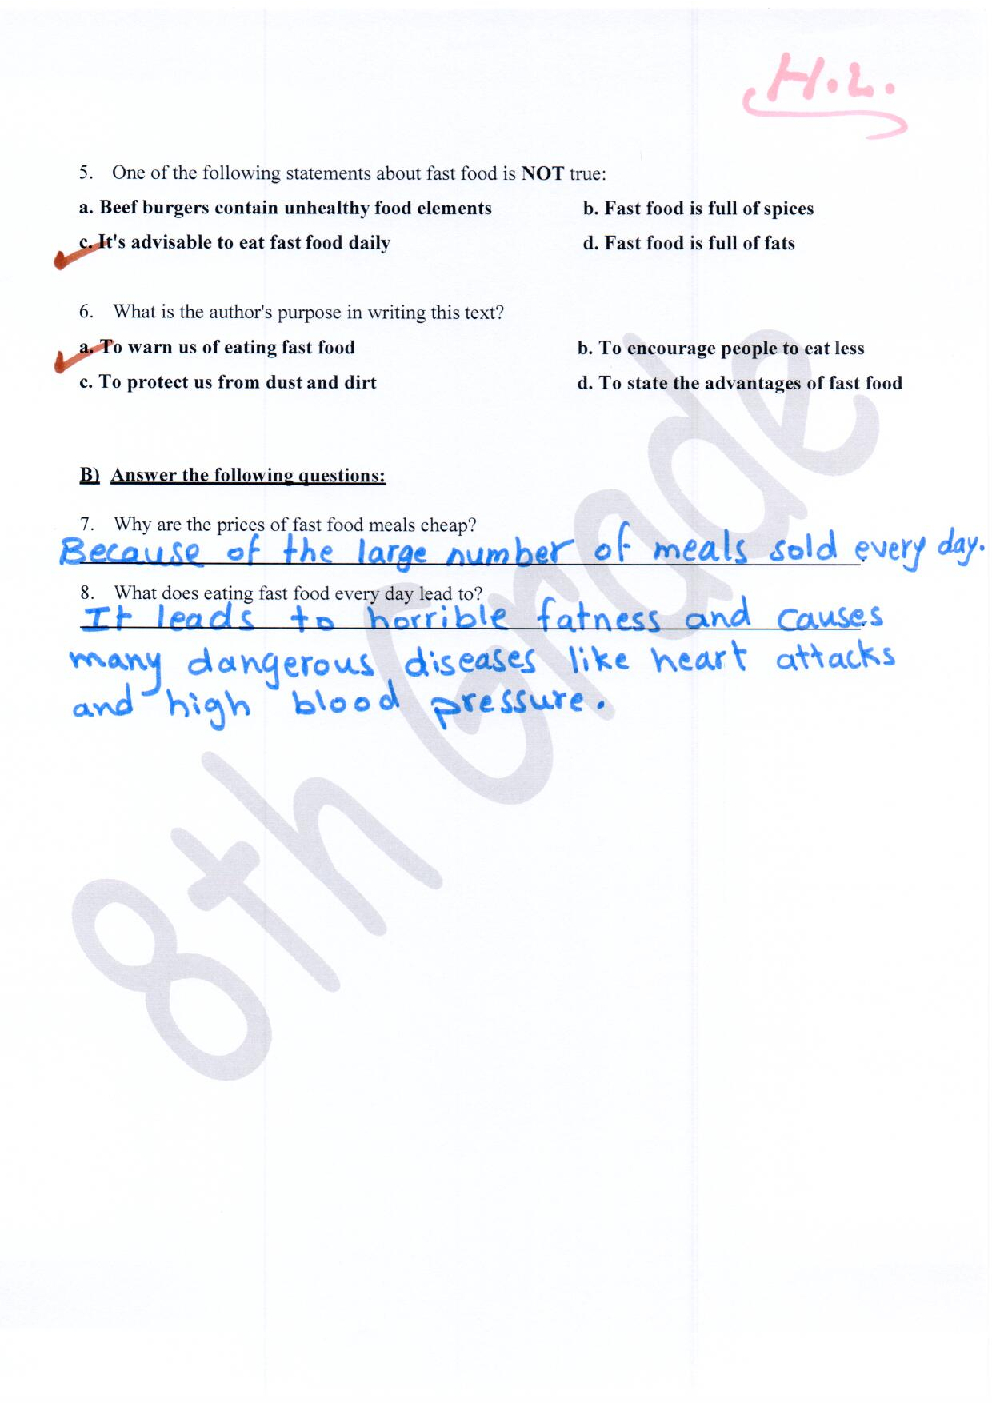 H.L.
5. One of the following statements about fast food is NOT true:
a. Beef burgers contain unhealthy food elements b. Fast food is full of spices
c. It's advisable to eat fast food daily d. Fast food is full of fats
6. What is the author's purpose in writing this text?
a. To warn us of eating fast food b. To encourage people to eat less
c. To protect us from dust and dirt d. To state the advantages of fast food
B) Answer the following questions:
7. Why are the prices of fast food meals cheap?
Because of the large number of meals sold every day.
8. What does eating fast food every day lead to?
It leads to horrible fatness and causes
many dangerous diseases like heart attacks
and high blood pressure.
8th Grade